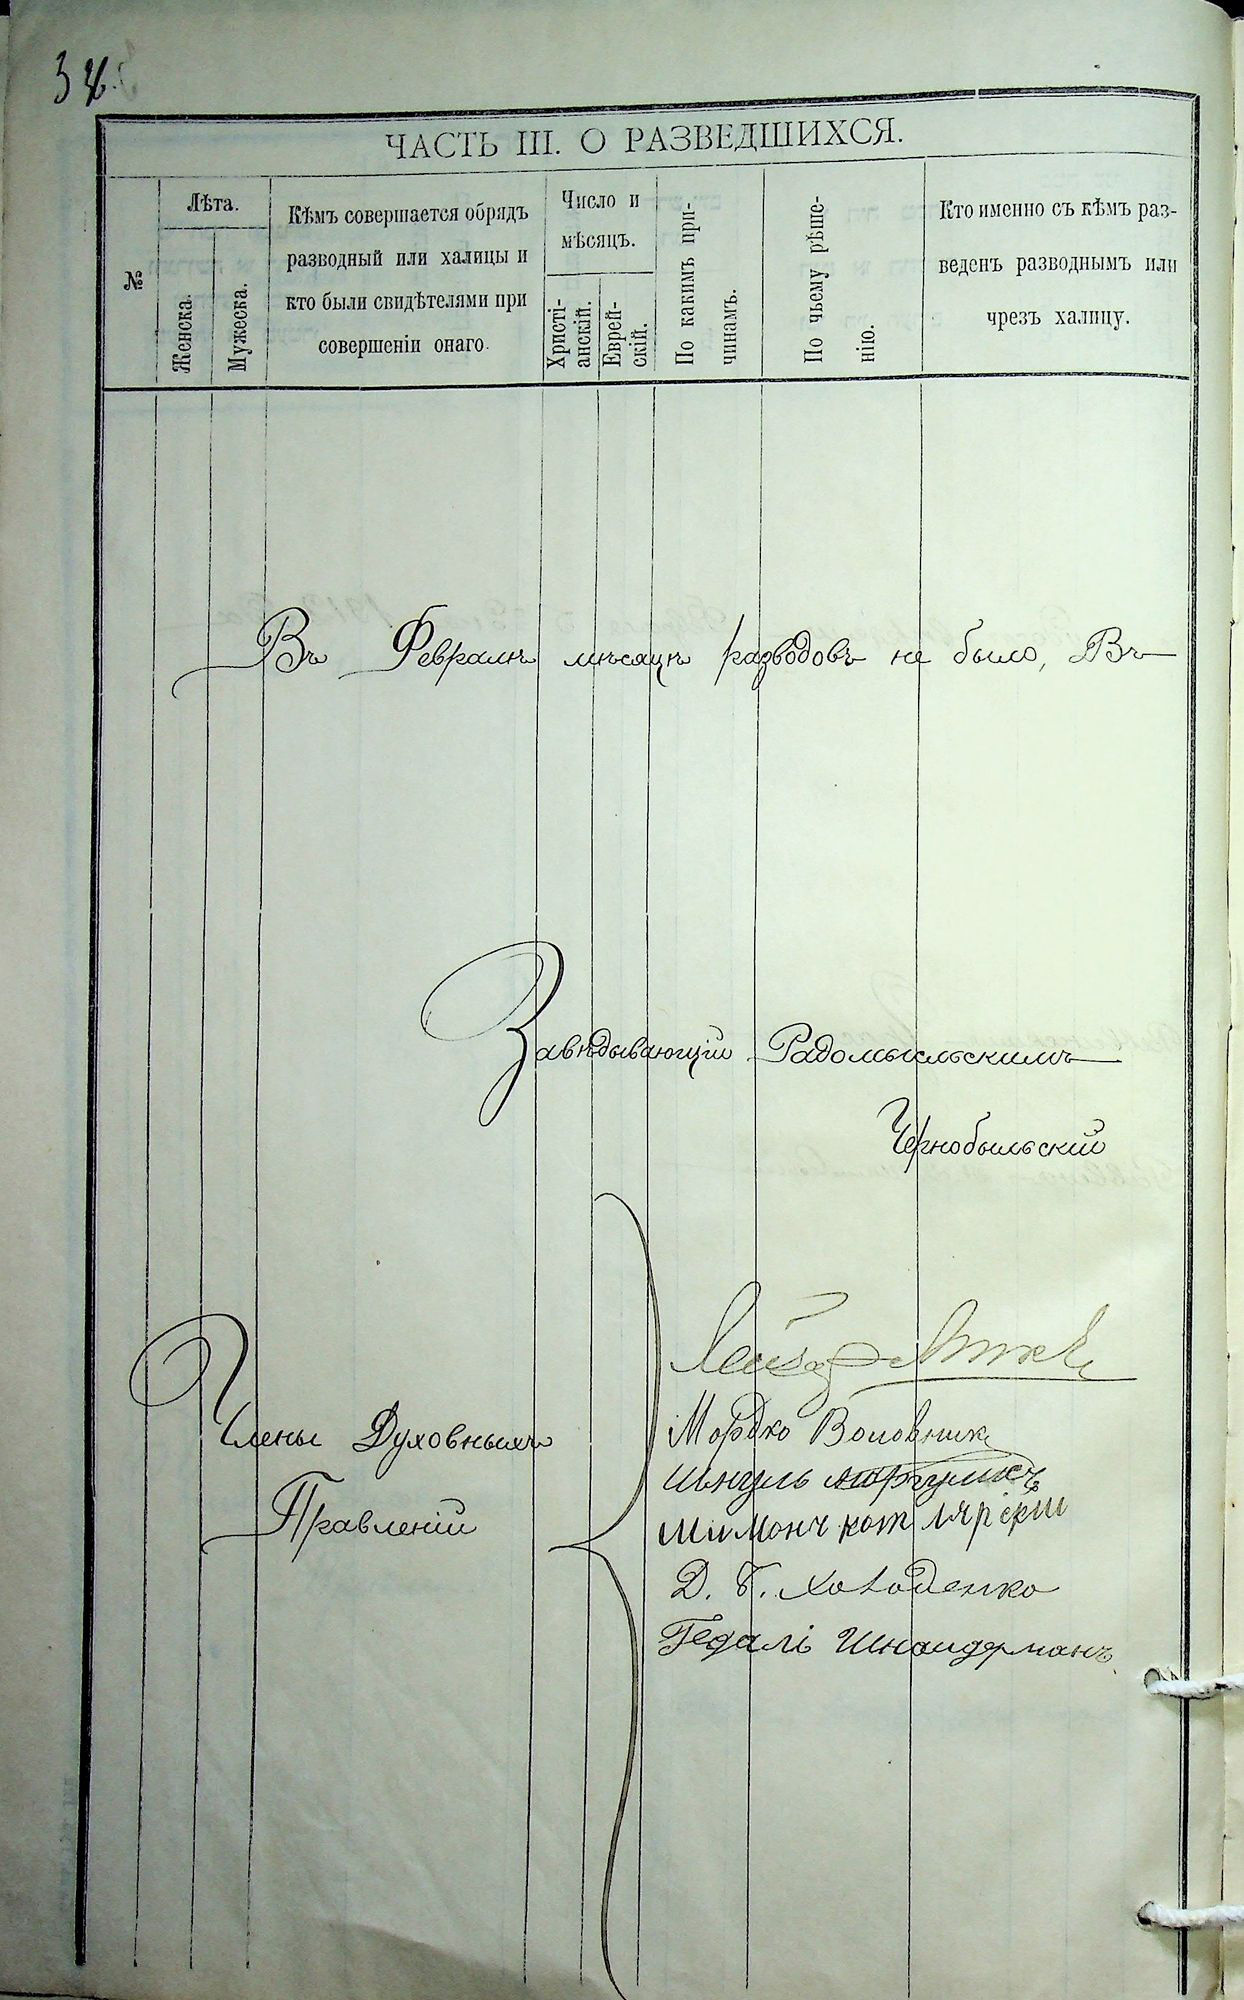 ЧАСТЬ III. О РАЗВЕДШИХСЯ.
№
Лѣта.
Женска.
Мужеска.
Кѣмъ совершается обрядъ
разводный или халицы и
кто были свидѣтелями при
совершеніи онаго.
Число и
мѣсяцъ.
Христі-
анскій.
Еврей-
скій.
По какимъ при-
чинамъ.
По чьему рѣше-
нію.
Кто именно съ кѣмъ раз-
веденъ разводнымъ или
чрезъ халицу.
Въ Февралѣ мѣсяцѣ разводовъ не было, Въ
Завѣдывающій Радомысльскимъ
Чернобыльскій
Члены Духовныхъ
Правленій
Мордко Воловник
Шимонъ Котлярскій
Д. Б. Холоденко
Гедалі Шнайдерманъ